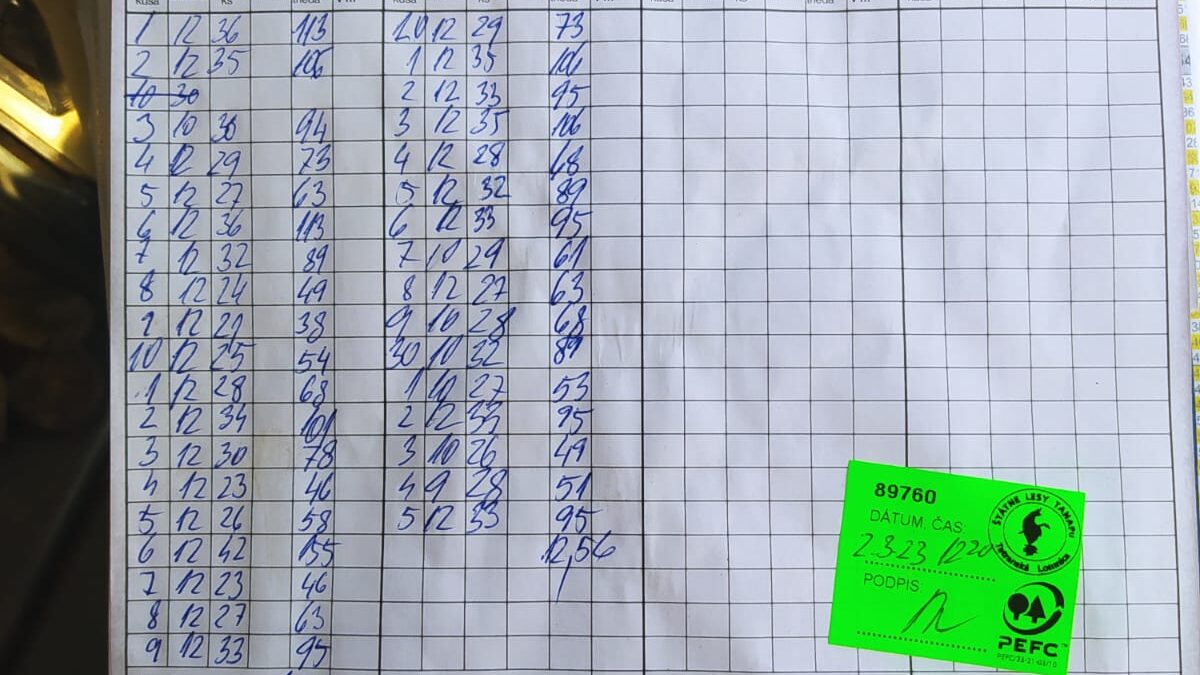 1 12 36 113
2 12 35 106
10 30
3 10 30 94
4 12 29 73
5 12 27 63
6 12 36 113
7 12 32 89
8 12 24 49
9 12 38
10 12 25 54
1 12 28 68
2 12 34 101
3 12 30 78
4 12 23 46
5 12 26 58
6 12 42 155
7 12 23 46
8 12 27 63
9 12 33 95
20 12 29 73
1 12 35 106
2 12 33 95
3 12 35 106
4 12 28 68
5 12 32 89
6 12 33 95
7 10 29 61
8 12 27 63
9 10 28 68
30 10 32 89
1 10 27 53
2 12 33 95
3 10 26 49
4 9 28 51
5 12 33 95
12,56
89760
DÁTUM, ČAS:
2.3.23 1220
PODPIS:
ŠTÁTNE LESY TANAPU
Tatranská Lomnica
PEFC